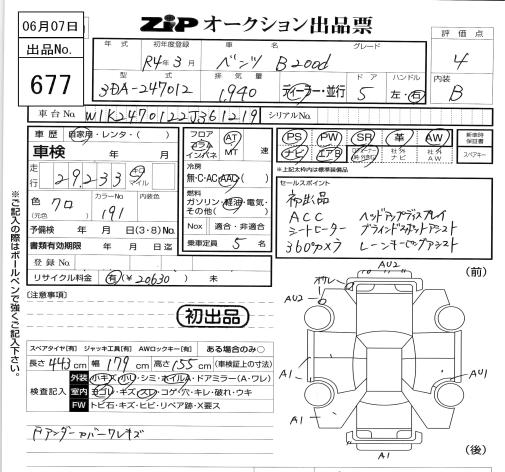 06月07日
ZIP オークション出品票
出品No.
677
年式 初年度登録 車名 グレード 評価点
R4年3月 ベンツ B200d 4
型式 排気量 ドア ハンドル 内装
3DA-247012 1,940 ディーラー・並行 5 左・右 B
車台No. W1K2470122J361219 シリアルNo.
車歴 自家用・レンタ・( )
車検 年 月
走行 29,233 キロ マイル
色 クロ (元色) カラーNo. 191 内装色
予備検 年 月 日(3・8)No.
書類有効期限 年 月 日迄
登録No.
リサイクル料金 有(¥20630) 未
フロア コラム インパネ AT MT 速
冷房 無・C・AC・AAC
燃料 ガソリン・軽油・電気・その他( )
Nox 適合・非適合
乗車定員 5 名
PS PW SR 革 AW
ナビ エアB 社外ナビ 社外AW
新車時保証書
スペアキー
*上記太枠内は標準装備品
セールスポイント
初出品
ACC ヘッドアップディスプレイ
シートヒーター ブラインドスポットアシスト
360°カメラ レーンキーピングアシスト
※ご記入の際はボールペンで強くご記入下さい。
[注意事項]
初出品
スペアタイヤ[有] ジャッキ工具[有] AWロックキー[有] ある場合のみ○
長さ 443cm 幅 179cm 高さ 155cm (車検証上の寸法)
検査記入
外装 小キズ・小U・シミ・ホイルA・ドアミラー(A・ワレ)
室内 ヨゴレ・キズ・スレ・コゲ・穴・キレ・破れ・ウキ
FW トビ石・キズ・ヒビ・リペア跡・X要ス
ドアンダーカバークレキズ
(前)
AU2
AU2
A1
A1
AU1
A1
(後)